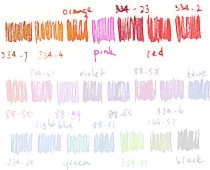 orange 334-23 334-2
334-7 334-4 pink red
violet 88-58 blue
88-50 88-99 88-65 334-6
light blue 88-51
334-30 green black